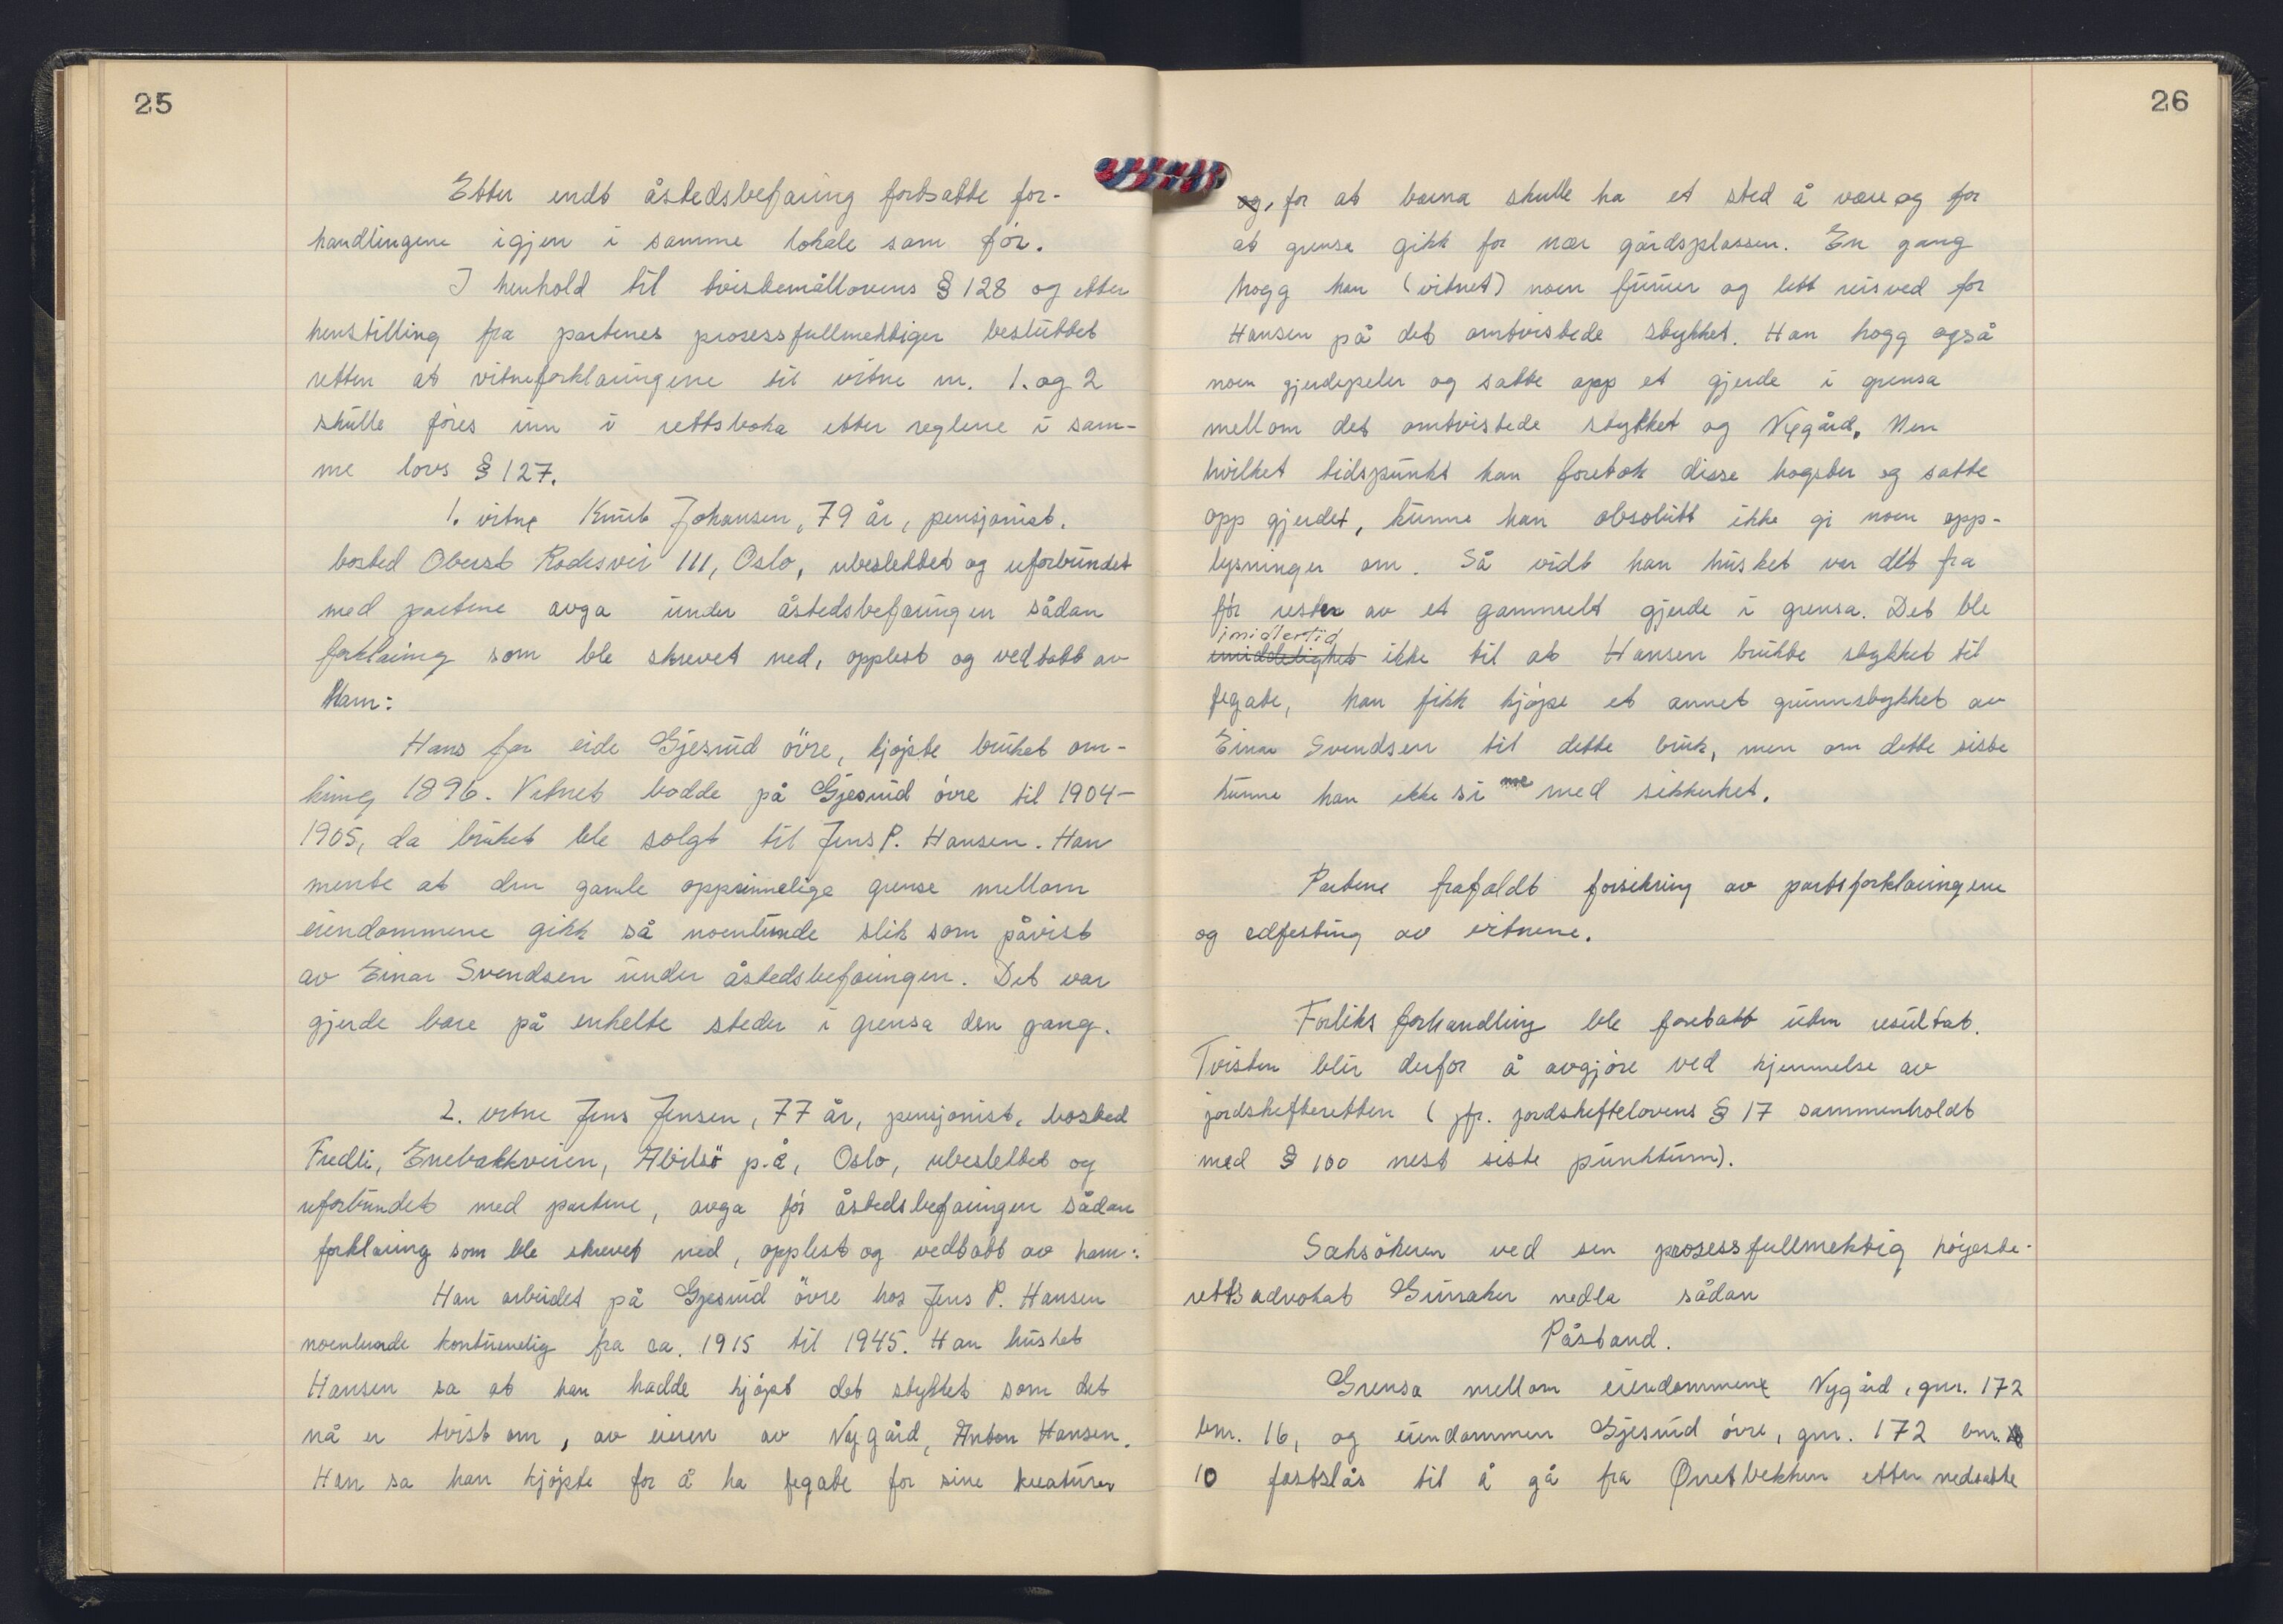 25
Etter endt åstedsbefaring fortsatte for-
handlingene igjen i samme lokale som før.
I henhold til tvistemållovens § 128 og etter
henstilling fra partenes prosessfullmektiger besluttet
retten at vitneforklaringene til vitne nr. 1. og 2
skulle føres inn i rettsboka etter reglene i sam-
me lovs § 127.
1. vitne Knut Johansen, 79 år, pensjonist,
bosted Oberst Rodesvei 111, Oslo, ubeslektet og uforbundet
med partene avga under åstedsbefaringen sådan
forklaring som ble skrevet ned, opplest og vedtatt av
ham:
Hans far eide Gjesrud øvre, kjøpte bruket om-
kring 1896. Vitnet bodde på Gjesrud øvre til 1904-
1905, da bruket ble solgt til Jens P. Hansen. Han
mente at den gamle opprinnelige grense mellom
eiendommene gikk så noenlunde slik som påvist
av Einar Svendsen under åstedsbefaringen. Det var
gjerde bare på enkelte steder i grensa den gang.
2. vitne Jens Jensen, 77 år, pensjonist, bosted
Fredli, Enebakkveien, Abildsø p.å, Oslo, ubeslektet og
uforbundet med partene, avga før åstedsbefaringen sådan
forklaring som ble skrevet ned, opplest og vedtatt av ham:
Han arbeidet på Gjesrud øvre hos Jens P. Hansen
noenlunde kontinuerlig fra ca. 1915 til 1945. Han husket
Hansen sa at han hadde kjøpt det stykket som det
nå er tvist om, av eieren av Nygård, Anton Hansen.
Han sa han kjøpte for å ha fegate for sine kreaturer
26
og, for at barna skulle ha et sted å være og for
at grensa gikk for nær gårdsplassen. En gang
hogg han (vitnet) noen furuer og litt reisved for
Hansen på det omtvistede stykket. Han hogg også
noen gjerdepeler og satte opp et gjerde i grensa
mellom det omtvistede stykket og Nygård. Men
hvilket tidspunkt han foretok disse hogster og satte
opp gjerdet, kunne han absolutt ikke gi noen opp-
lysninger om. Så vidt han husket var det fra
før rester av et gammelt gjerde i grensa. Det ble
imidlertid
ikke til at Hansen brukte stykket til
fegate, han fikk kjøpe et annet grunnstykket av
Einar Svendsen til dette bruk, men om dette siste
kunne han ikke si noe med sikkerhet.
Partene frafaldt forsikring av partsforklaringene
og edfesting av vitnene.
Forliksforhandling ble foretatt uten resultat.
Tvisten blir derfor å avgjøre ved kjennelse av
jordskifteretten (jfr. jordskiftelovens § 17 sammenholdt
med § 100 nest siste punktum).
Saksøkeren ved sin prosessfullmektig høyeste-
rettsadvokat Grinaker nedla sådan
Påstand.
Grensa mellom eiendommene Nygård, gnr. 172
bnr. 16, og eiendommen Gjesrud øvre, gnr. 172 bnr.
10 fastslås til å gå fra Ørretbekken etter nedsatte